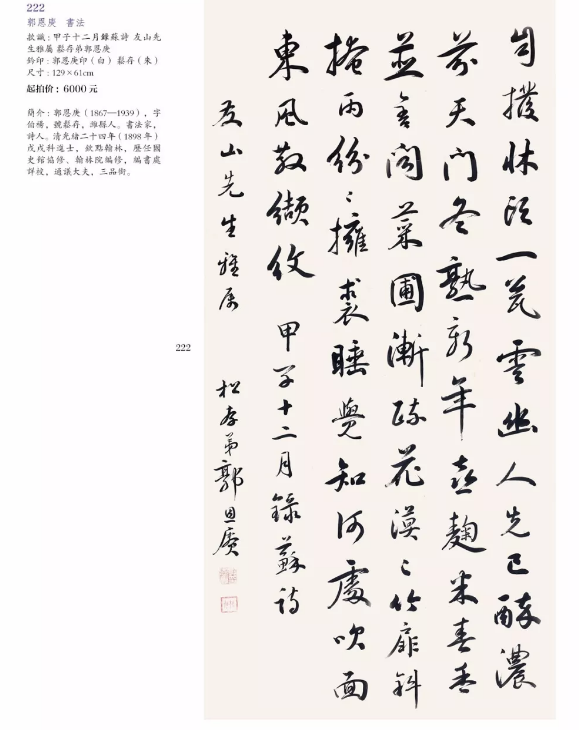 222
郭恩庚 書法
款識：甲子十二月錄蘇詩 友山先
生雅屬 鬆存弟郭恩庚
鈐印：郭恩庚印（白） 鬆存（朱）
尺寸：129×61cm
起拍价：6000元
簡介：郭恩庚（1867—1939），字
伯楊，號鬆存，濰縣人。書法家，
詩人。清光緒二十四年（1898年）
戊戌科進士，欽點翰林，歷任國
史館協修、翰林院編修，編書處
詳校，通議大夫，三品銜。
222
自撥牀頭一甕雲幽人先已醉濃
芬天門冬熟新年喜麴米春香
並舍聞菜圃漸疏花漠漠竹扉斜
掩雨紛紛擁裘睡覺知何處吹面
東風散纈紋 甲子十二月錄蘇詩
友山先生雅屬 松存弟郭恩賡